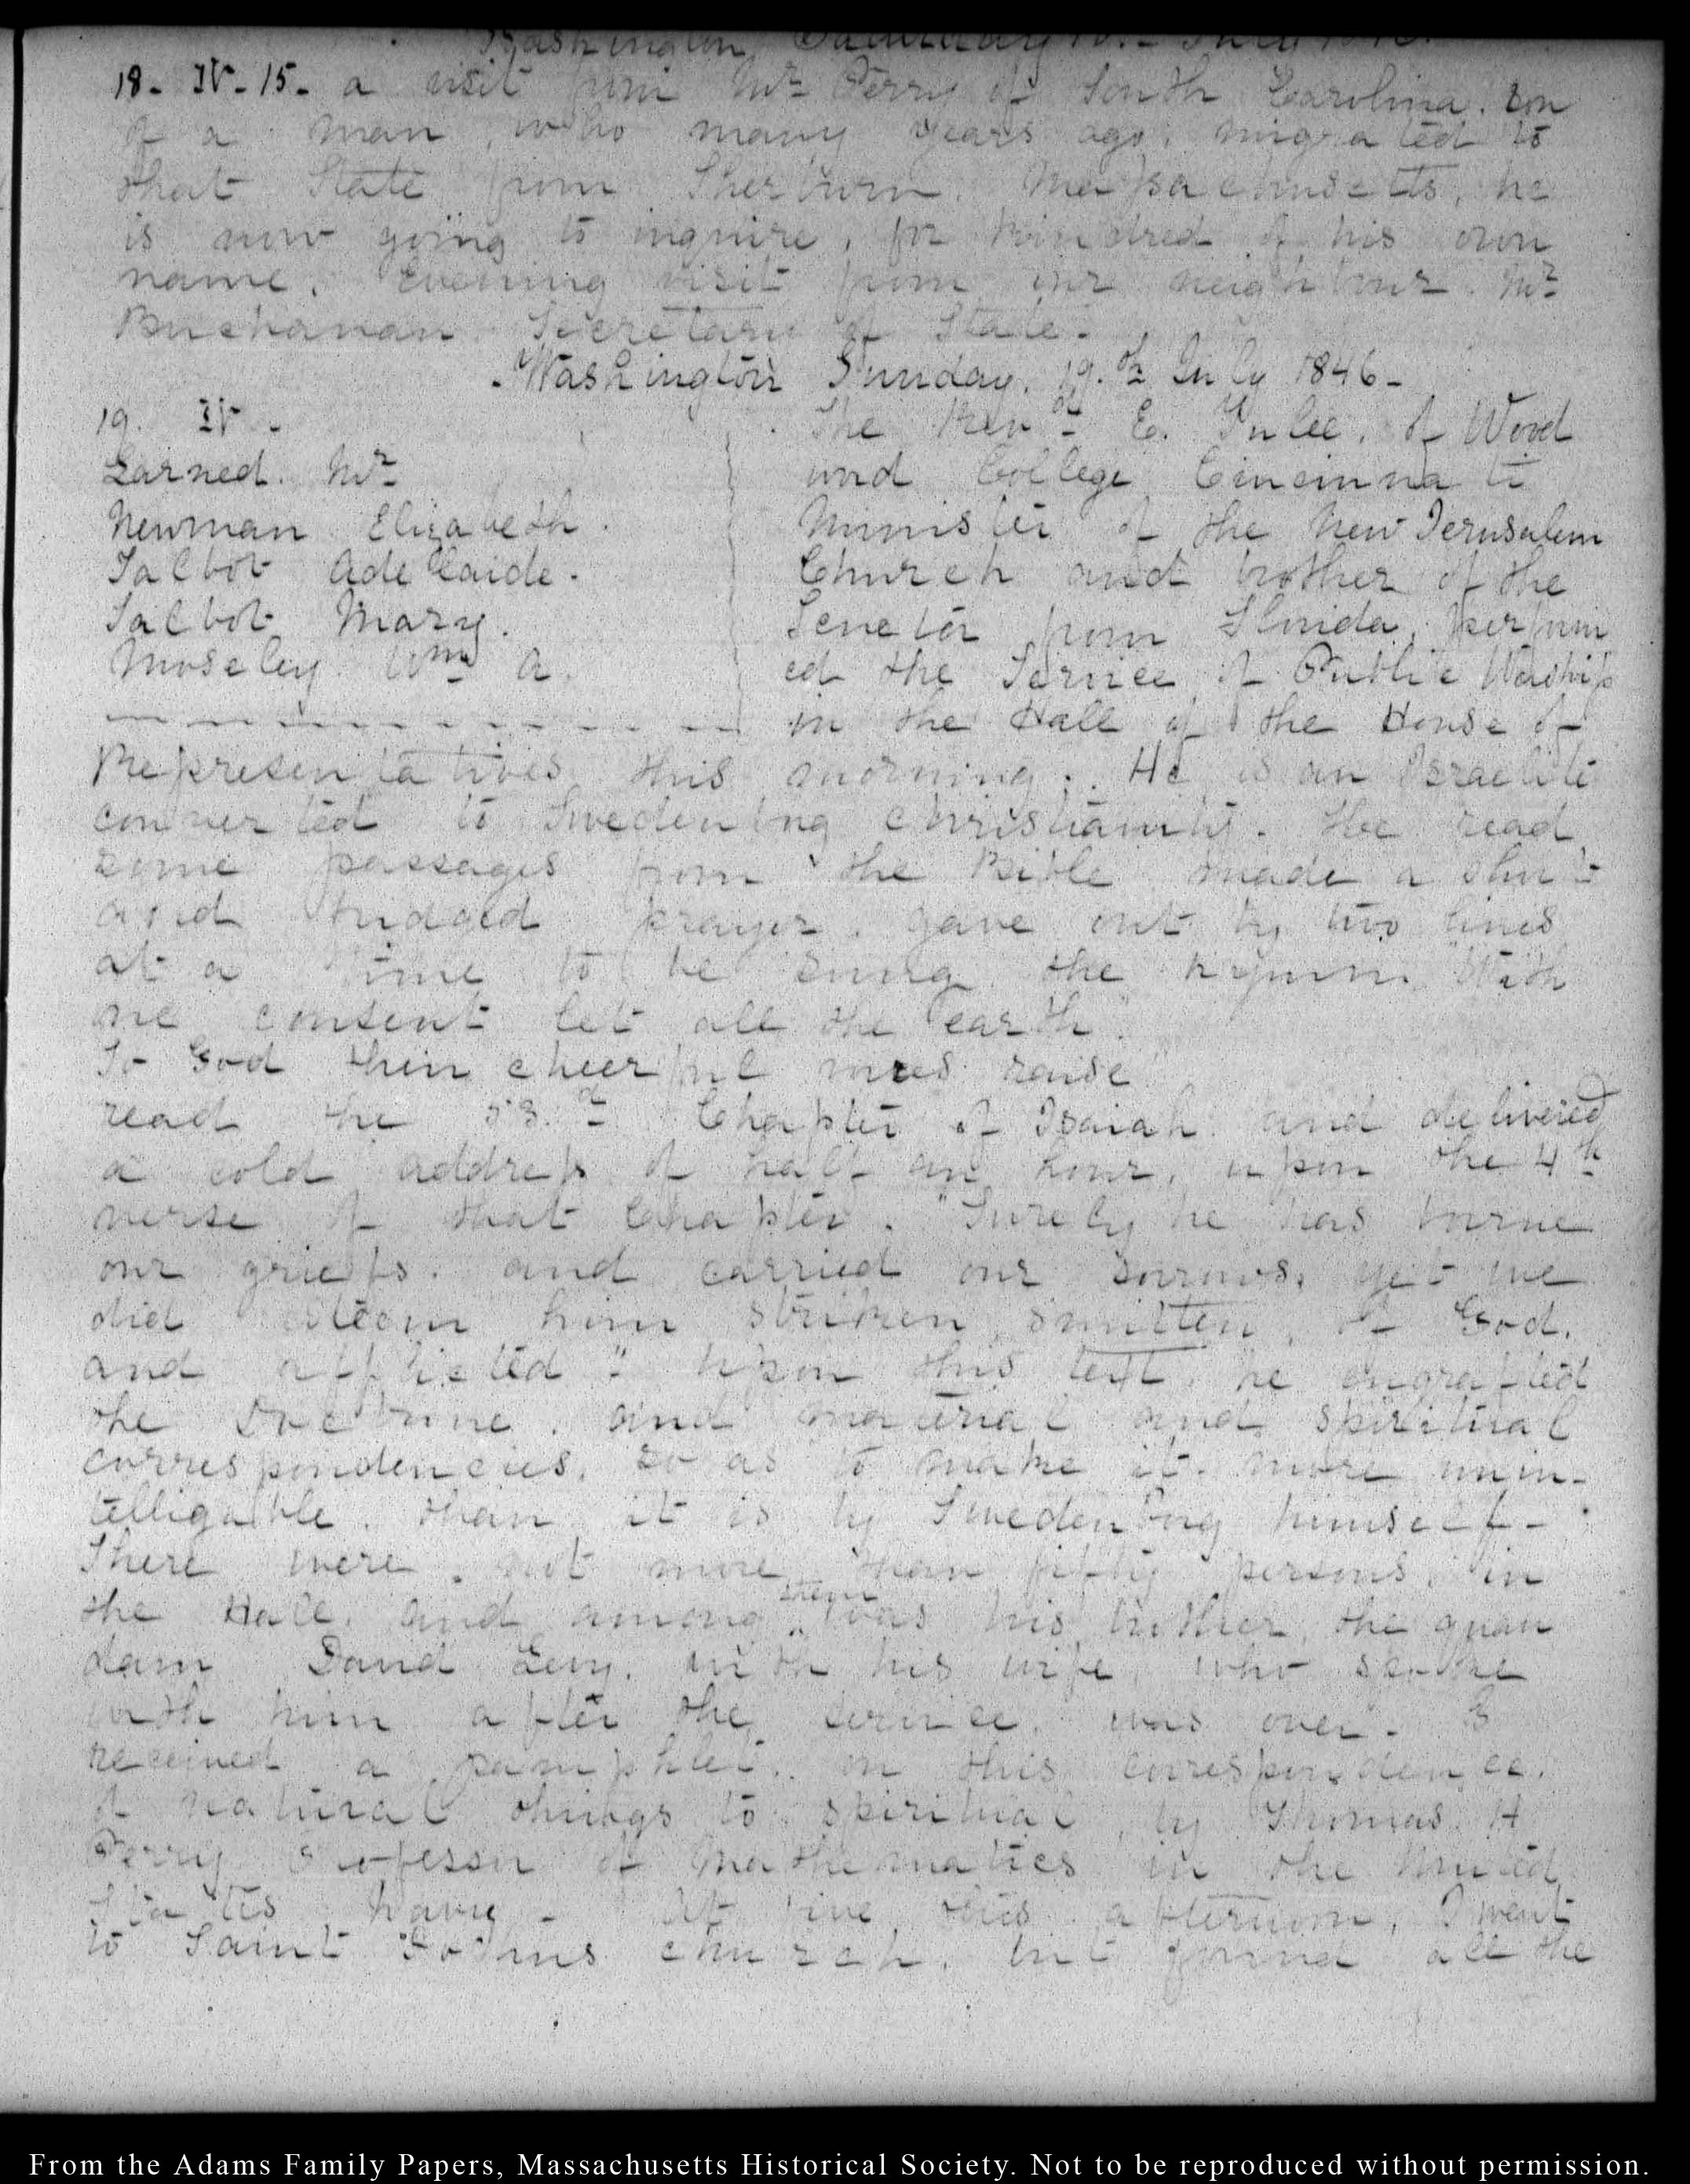 Washington, Saturday 18. - July 1846.
18. IV. 15. a visit from Mr Perry of South Carolina. son
of a man, who many years ago, migrated to
that State from Sherburn, Massachusetts, he
is now going to inquire, for kindred of his own
name. Evening visit from our neighbour Mr
Buchanan Secretary of State.
Washington Sunday. 19.th July 1846 -
19. IV.
Larned. Mr
Newman Elizabeth.
Talbot Adelaide.
Talbot Mary.
Moseley Wm A.
The Revd E. Yulee, of Wood
ward College Cincinnati
Minister of the New Jerusalem
Church and brother of the
Senator from Florida, perform
ed the Service of Public Worship
in the Hall of the House of
Representatives this morning. He is an Israelite
converted to Swedenborg christianity. He read
some passages from the Bible made a short
and bridged prayer, gave out by two lines
at a time to be sung the hymn "With
one consent let all the earth
To God their cheerful voices raise"
read the 53.d Chapter of Isaiah and delivered
a cold address of half an hour, upon the 4th
verse of that Chapter. "Surely he has borne
our griefs. and carried our sorrows, yet we
did esteem him stricken, smitten, of God,
and afflicted" Upon this text, he engrafted
the Doctrine, and material and spiritual
correspondencies, so as to make it. more unin-
telligable, than it is by Swedenborg himself -
There were not more than fifty persons, in
the Hall, and among them was his brother, the quon
dam David Levy, with his wife, who spoke
with him after the service, was over - I
received a pamphlet, on this correspondence,
of natural things to spiritual, by Thomas H
Perry Professor of Mathematics in the United
States Navy - At five this afternoon, I went
to Saint Johns church, but found all the
From the Adams Family Papers, Massachusetts Historical Society. Not to be reproduced without permission.